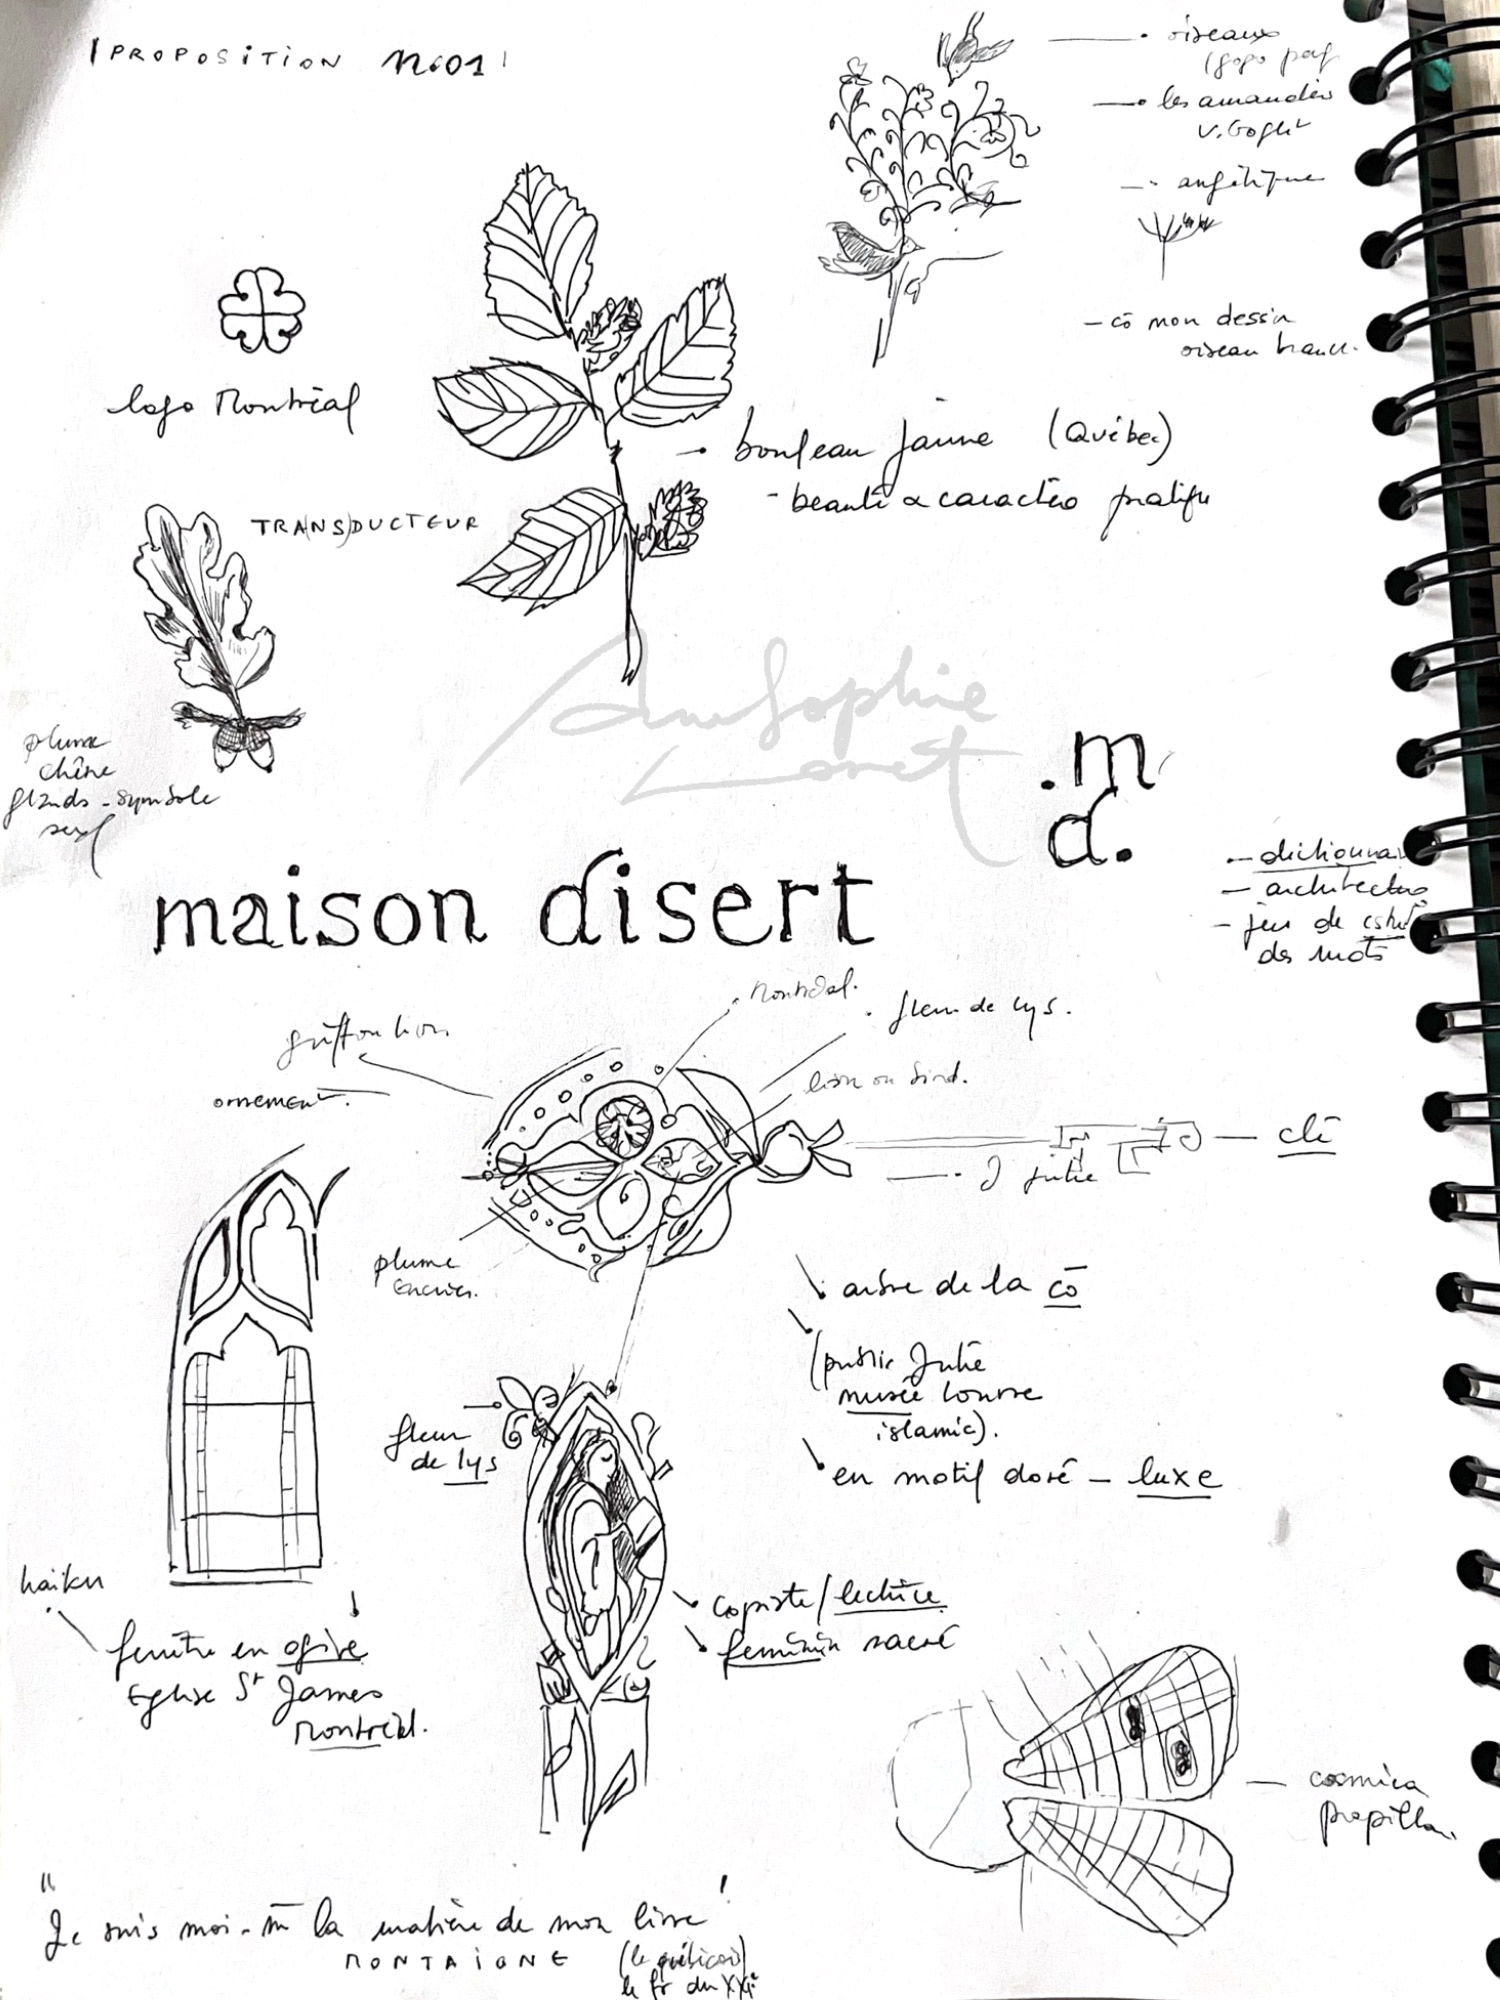 PROPOSITION N°01
oiseaux
les amandiers
V. Gogh
angélique
- cō mon dessin
oiseau branc.
logo Montréal
bouleau jaune (Québec)
- beauté & caractère pratique
TRA(NS)DUCTEUR
plume
chêne
glands - symbole
sexl
AnneSophie
Lonet
.m
d.
maison disert
- dictionnai
- architecture
- jeu de
des mots
Montréal.
fleur de lys.
griffon lion
lion ou bird.
ornement.
clé
Julie
plume
encrier.
arbre de la cō
(public Julie
musée Louvre
islamic).
en motif doré - luxe
fleur
de lys
haiku
copiste/lectrice
féminin sacré
fenêtre en ogive
Eglise St James
Montréal.
cosmica
papillon
"Je suis moi-m̄ la matière de mon livre"
MONTAIGNE
(le québécois)
le fr du XXIe